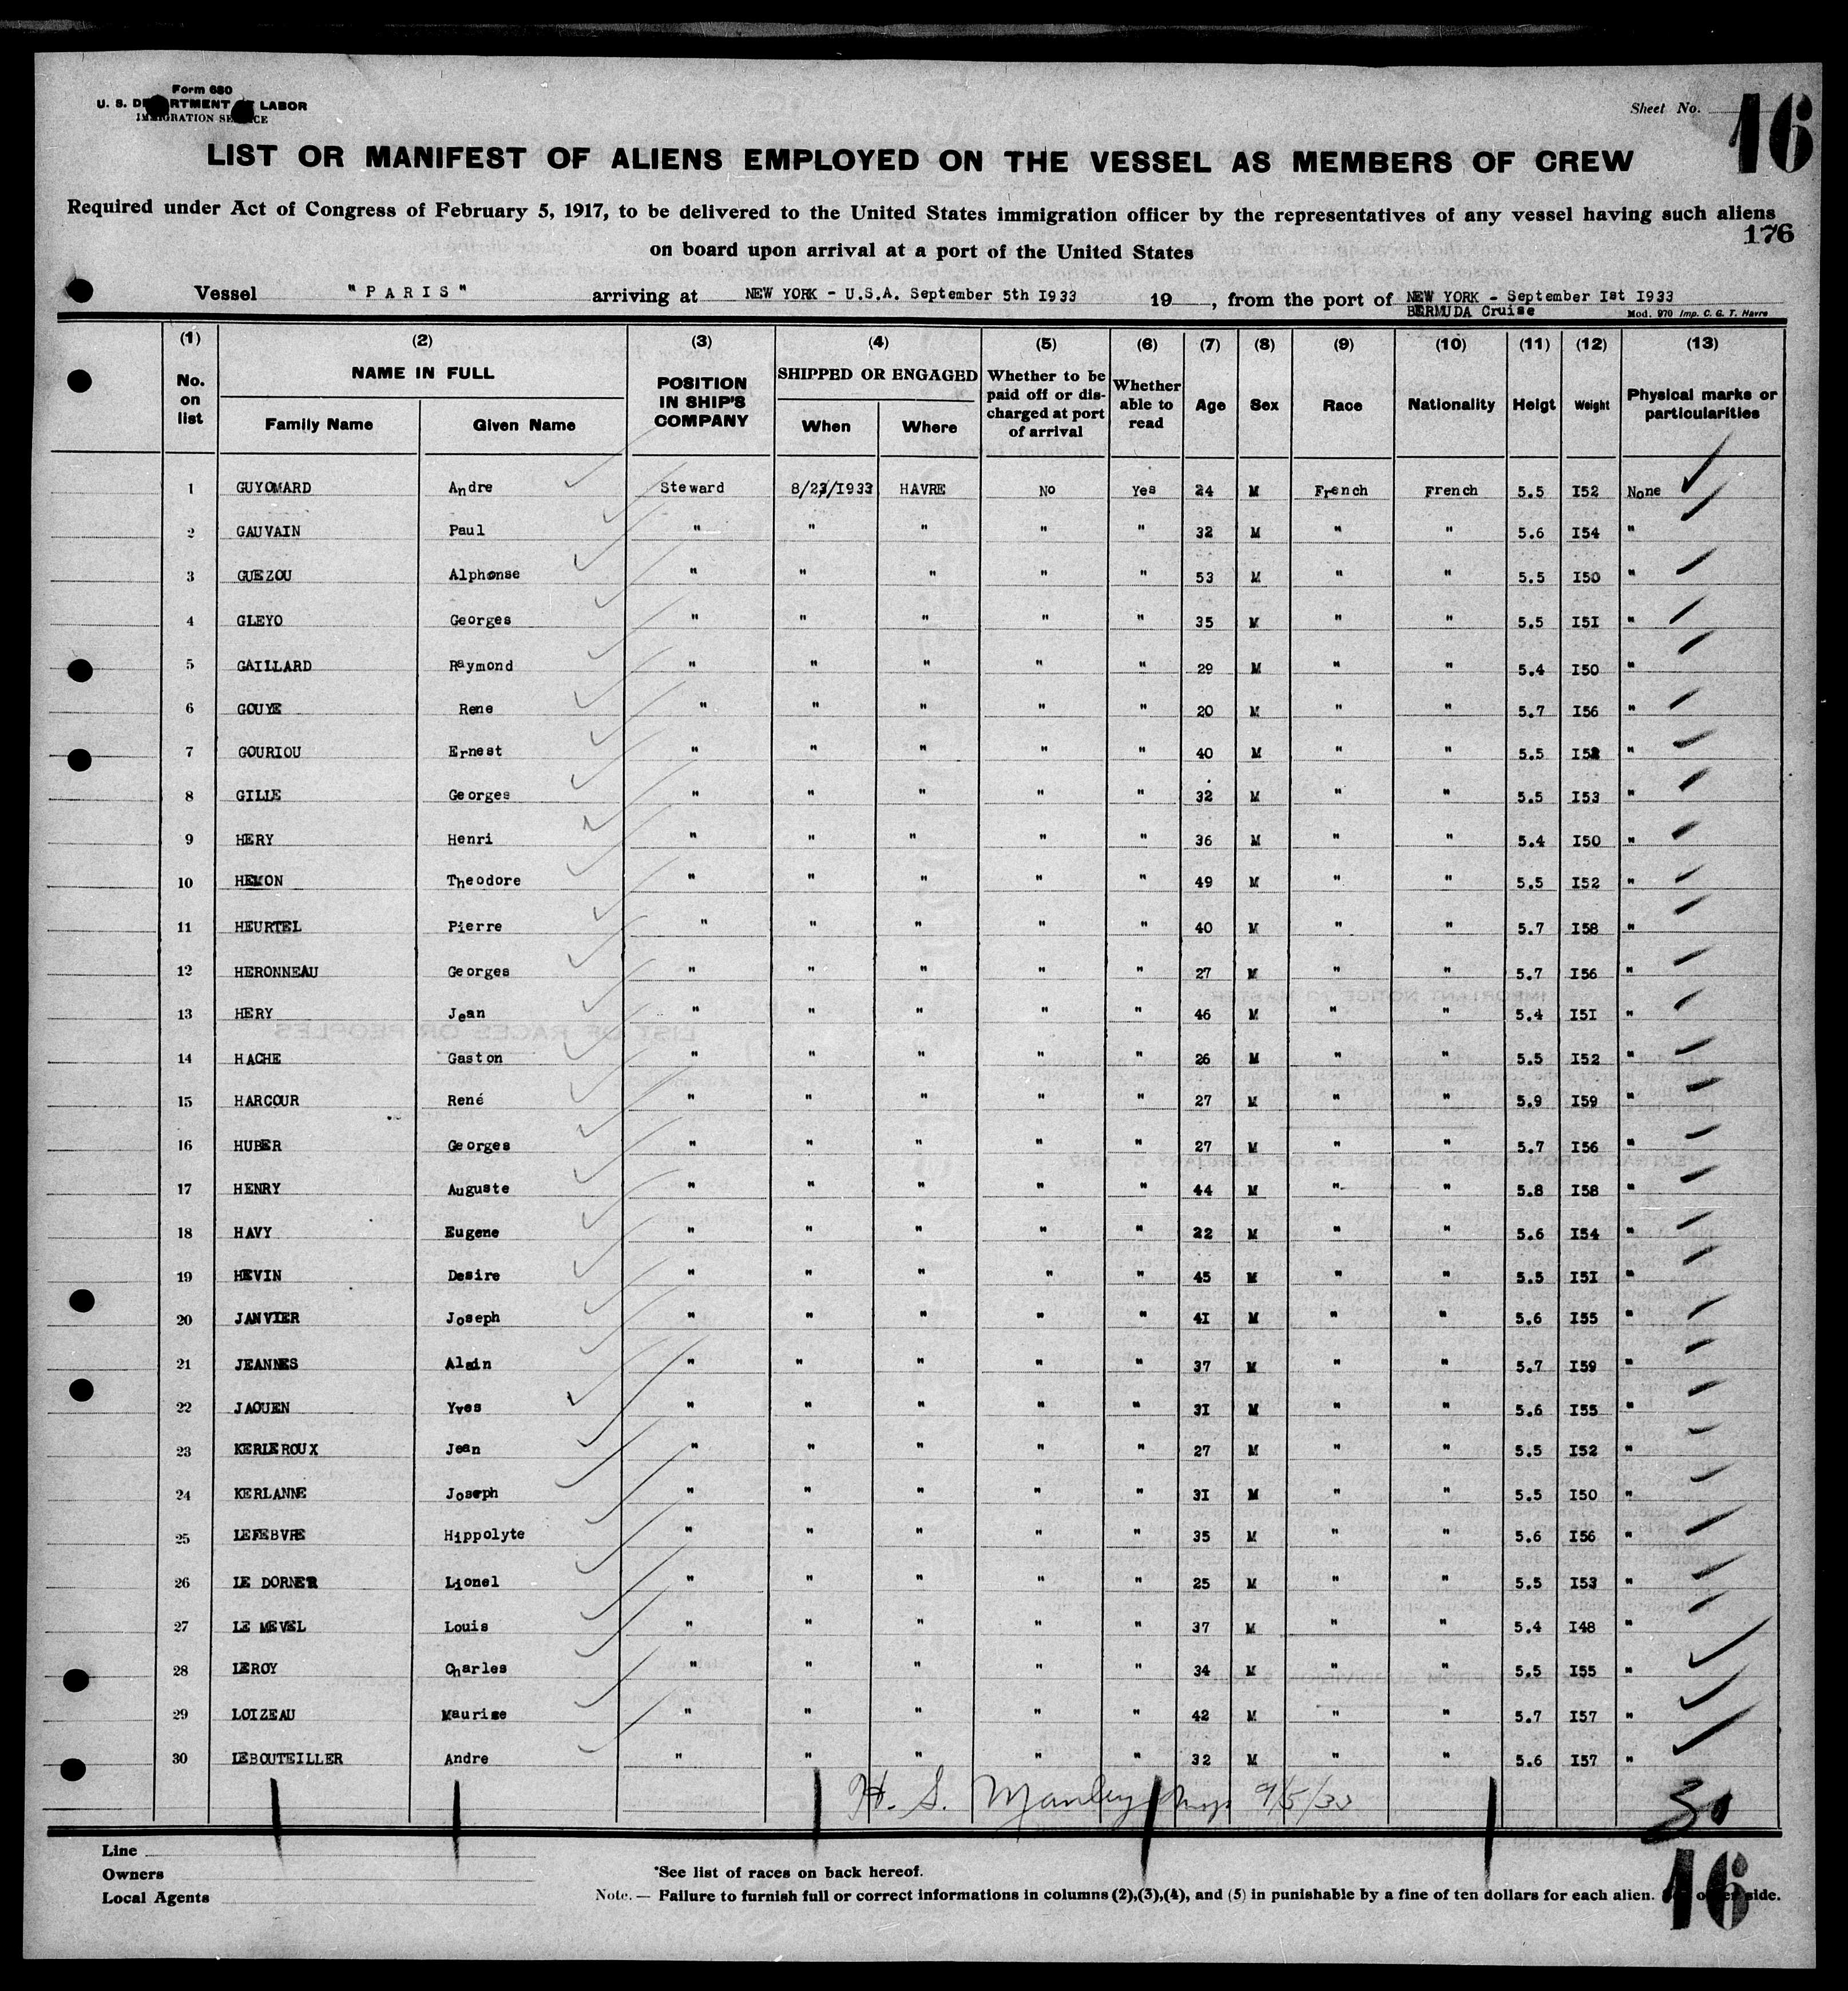 Form 680
U. S. DEPARTMENT OF LABOR
IMMIGRATION SERVICE
Sheet No. 16
LIST OR MANIFEST OF ALIENS EMPLOYED ON THE VESSEL AS MEMBERS OF CREW
Required under Act of Congress of February 5, 1917, to be delivered to the United States immigration officer by the representatives of any vessel having such aliens
176
on board upon arrival at a port of the United States
Vessel "PARIS" arriving at NEW YORK - U.S.A. September 5th I933 19 , from the port of NEW YORK - September Ist I933
BERMUDA Cruise
Mod. 970 Imp. C. G. T. Havre
(1) (2) (3) (4) (5) (6) (7) (8) (9) (10) (11) (12) (13)
No. on list NAME IN FULL Family Name Given Name POSITION IN SHIP'S COMPANY SHIPPED OR ENGAGED When Where Whether to be paid off or discharged at port of arrival Whether able to read Age Sex Race Nationality Heigt Weight Physical marks or particularities
1 GUYOMARD Andre Steward 8/23/I933 HAVRE No Yes 24 M French French 5.5 I52 None
2 GAUVAIN Paul " " " " " 32 M " " 5.6 I54 "
3 GUEZOU Alphonse " " " " " 53 M " " 5.5 I50 "
4 GLEYO Georges " " " " " 35 M " " 5.5 I5I "
5 GAILLARD Raymond " " " " " 29 M " " 5.4 I50 "
6 GOUYE Rene " " " " " 20 M " " 5.7 I56 "
7 GOURIOU Ernest " " " " " 40 M " " 5.5 I52 "
8 GILLE Georges " " " " " 32 M " " 5.5 I53 "
9 HERY Henri " " " " " 36 M " " 5.4 I50 "
10 HEMON Theodore " " " " " 49 M " " 5.5 I52 "
11 HEURTEL Pierre " " " " " 40 M " " 5.7 I58 "
12 HERONNEAU Georges " " " " " 27 M " " 5.7 I56 "
13 HERY Jean " " " " " 46 M " " 5.4 I5I "
14 HACHE Gaston " " " " " 26 M " " 5.5 I52 "
15 HARCOUR René " " " " " 27 M " " 5.9 I59 "
16 HUBER Georges " " " " " 27 M " " 5.7 I56 "
17 HENRY Auguste " " " " " 44 M " " 5.8 I58 "
18 HAVY Eugene " " " " " 22 M " " 5.6 I54 "
19 HEVIN Desire " " " " " 45 M " " 5.5 I5I "
20 JANVIER Joseph " " " " " 4I M " " 5.6 I55 "
21 JEANNES Alain " " " " " 37 M " " 5.7 I59 "
22 JAOUEN Yves " " " " " 3I M " " 5.6 I55 "
23 KERLEROUX Jean " " " " " 27 M " " 5.5 I52 "
24 KERLANNE Joseph " " " " " 3I M " " 5.5 I50 "
25 LEFEBVRE Hippolyte " " " " " 35 M " " 5.6 I56 "
26 LE DORNER Lionel " " " " " 25 M " " 5.5 I53 "
27 LE MEVEL Louis " " " " " 37 M " " 5.4 I48 "
28 LEROY Charles " " " " " 34 M " " 5.5 I55 "
29 LOIZEAU Maurise " " " " " 42 M " " 5.7 I57 "
30 LEBOUTEILLER Andre " " " " " 32 M " " 5.6 I57 "
H. S. Manley Insp 9/5/33
30
Line
Owners
Local Agents
*See list of races on back hereof.
Note. — Failure to furnish full or correct informations in columns (2),(3),(4), and (5) in punishable by a fine of ten dollars for each alien. other side.
16